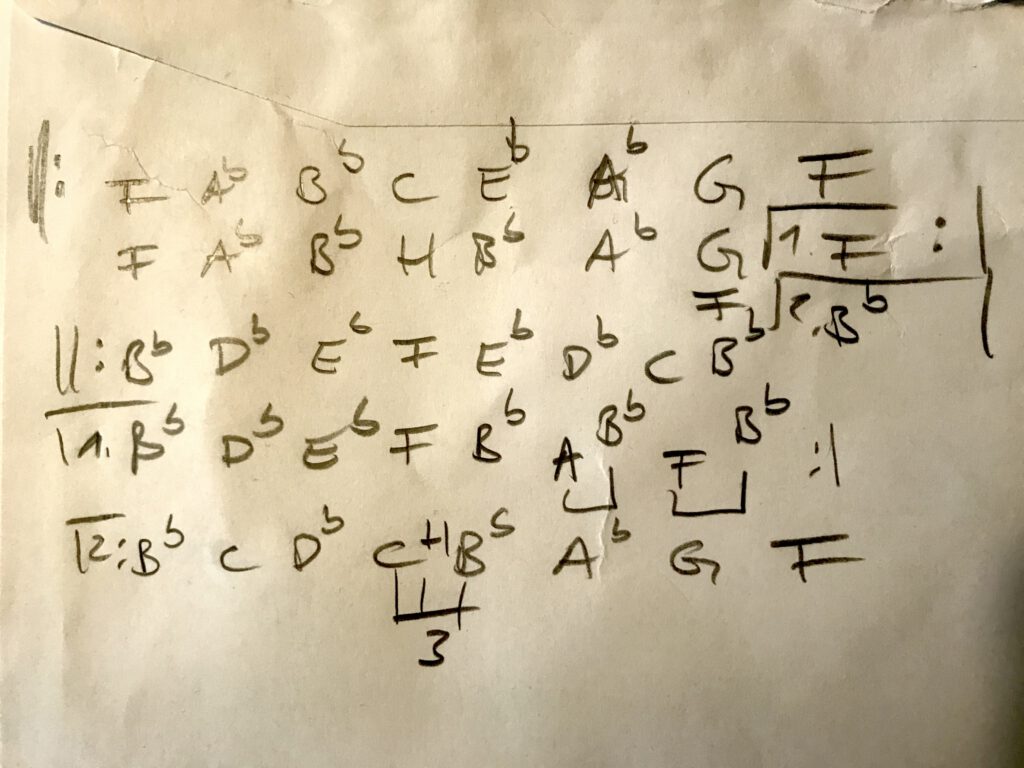 ||: F Ab Bb C Eb Ab G F
F Ab Bb H Bb Ab G 1. F :|
F 2. Bb
||: Bb Db Eb F Eb Db C Bb
1. Bb Db Eb F Bb A Bb F Bb :|
2: Bb C Db C H Bb Ab G F
3